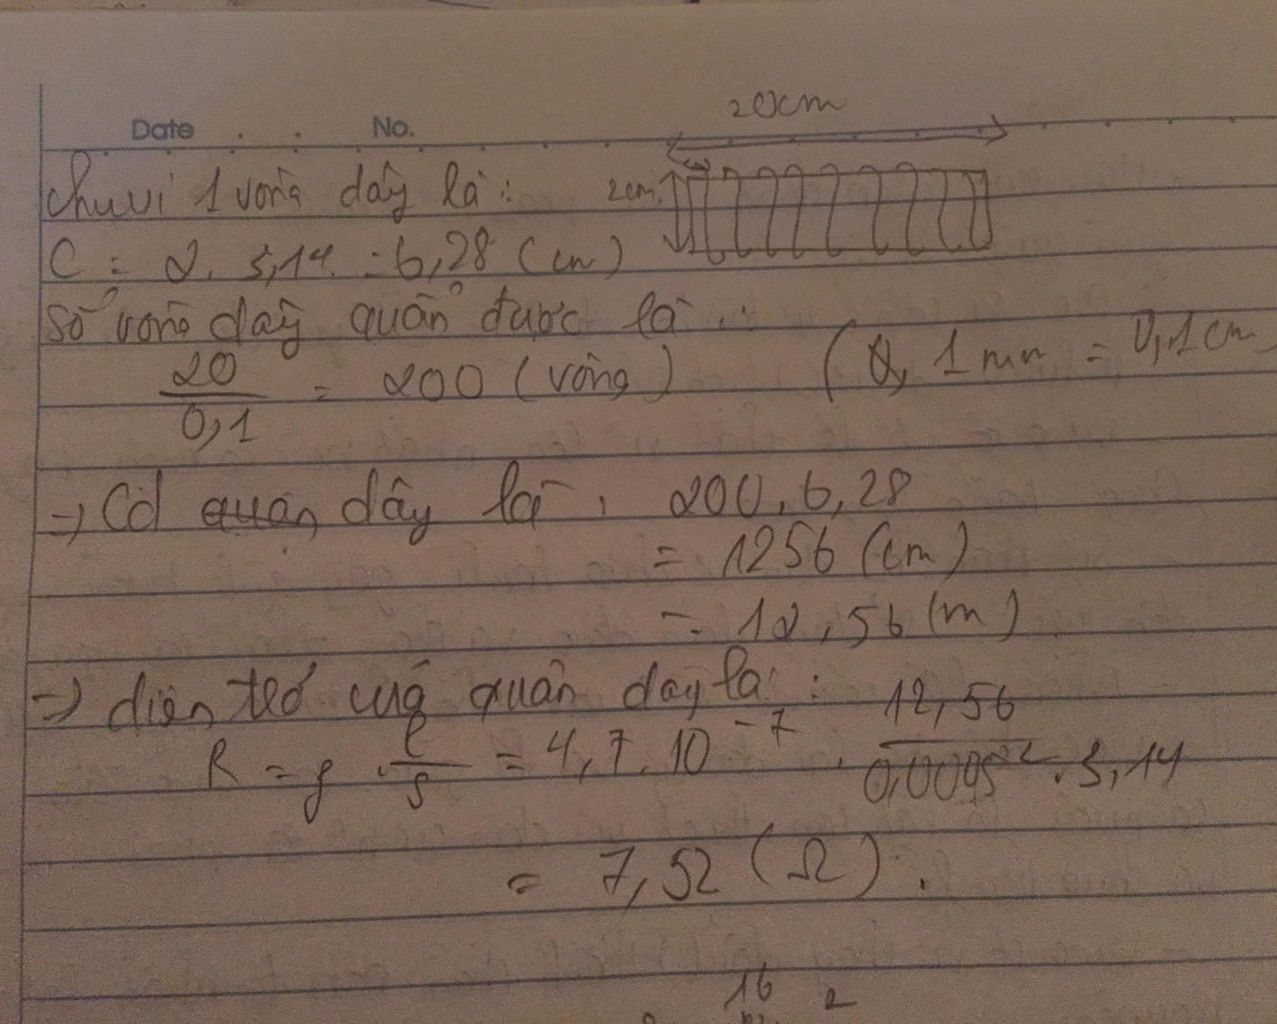 20cm
Date No.
Chu vi 1 vòng dây là : 2cm
C = 2. 3,14 = 6,28 (cm)
số vòng dây quấn được là :
20/0,1 = 200 (vòng) ( 1 mm = 0,1 cm
→ Cd quấn dây là : 200 . 6,28
= 1256 (cm)
= 12,56 (m)
→ điện trở của quấn dây là :
R = ρ . l/s = 4,7.10⁻⁷ . 12,56/0,0005² . 3,14
= 7,52 (Ω) .
16 2